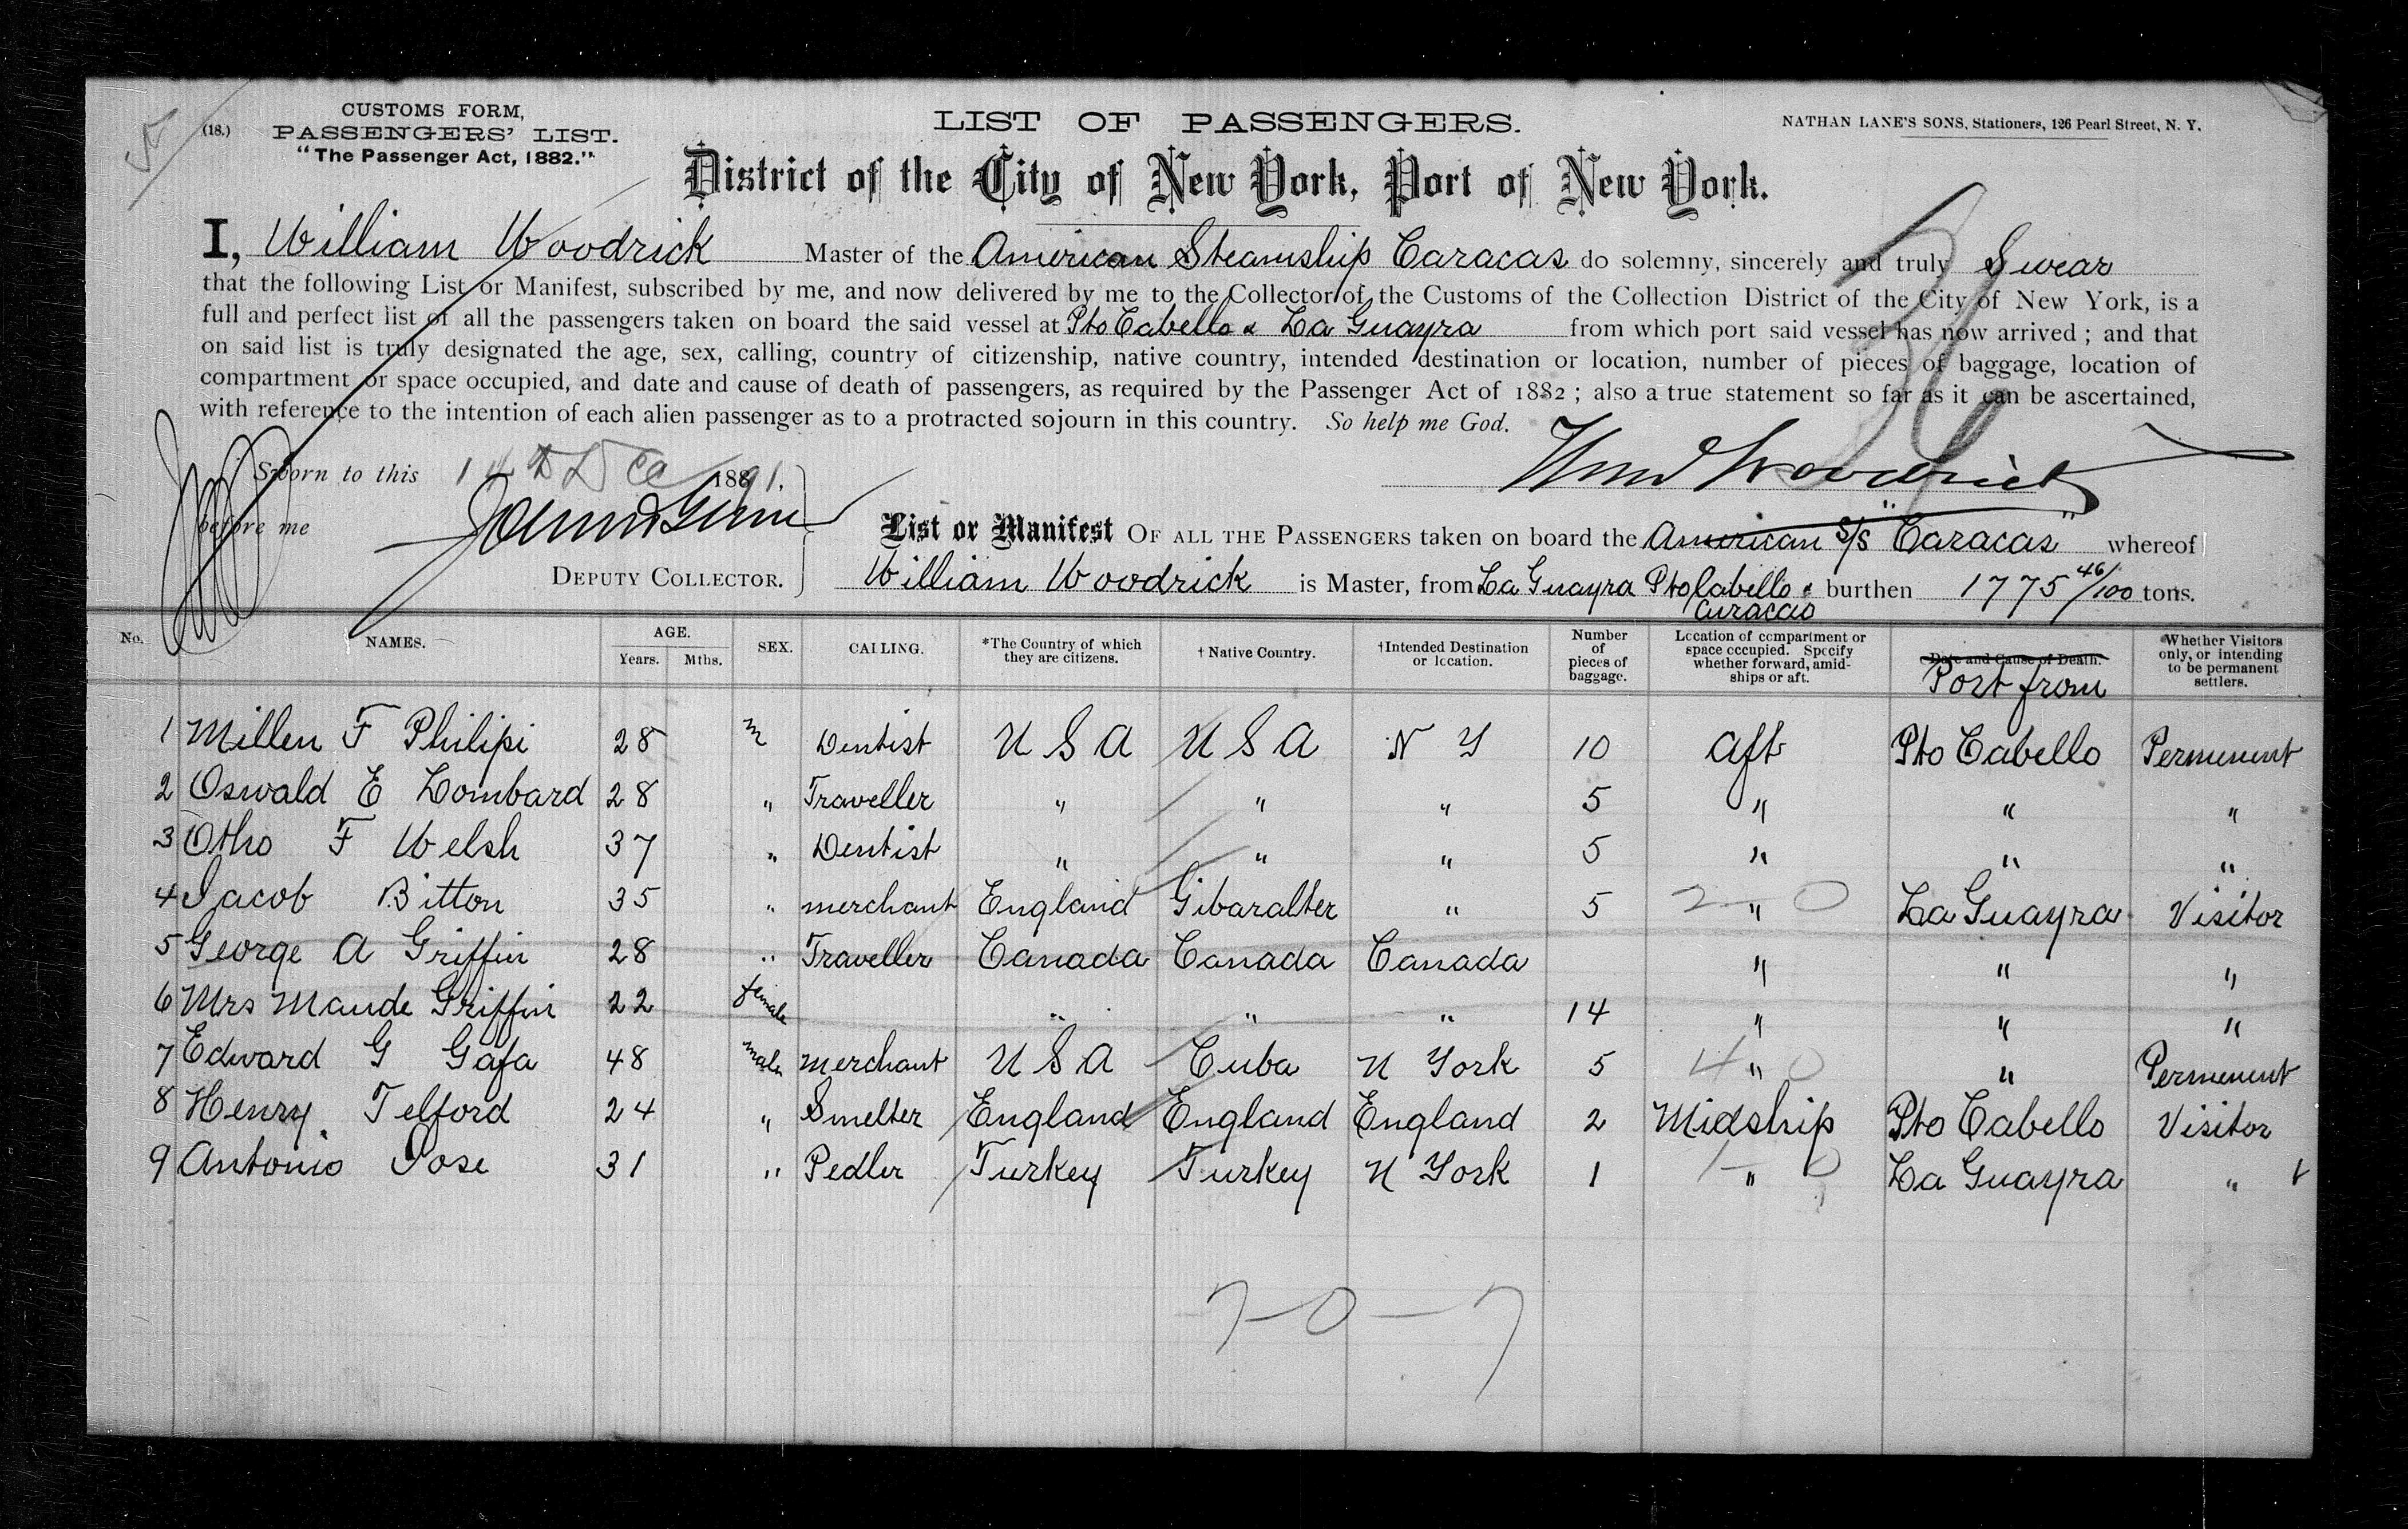 5
(18.)
CUSTOMS FORM,
PASSENGERS' LIST.
"The Passenger Act, 1882."
LIST OF PASSENGERS.
NATHAN LANE'S SONS, Stationers, 126 Pearl Street, N. Y.
District of the City of New York, Port of New York.
I, William Woodrick Master of the American Steamship Caracas do solemny, sincerely and truly Swear
that the following List or Manifest, subscribed by me, and now delivered by me to the Collector of the Customs of the Collection District of the City of New York, is a
full and perfect list of all the passengers taken on board the said vessel at Pto Cabello & La Guayra from which port said vessel has now arrived; and that
on said list is truly designated the age, sex, calling, country of citizenship, native country, intended destination or location, number of pieces of baggage, location of
compartment or space occupied, and date and cause of death of passengers, as required by the Passenger Act of 1882; also a true statement so far as it can be ascertained,
with reference to the intention of each alien passenger as to a protracted sojourn in this country. So help me God.
Sworn to this 14th Dec 1891.
Wm Woodrick
before me
DEPUTY COLLECTOR.
List or Manifest OF ALL THE PASSENGERS taken on board the American S/S "Caracas" whereof
William Woodrick is Master, from La Guayra Pto Cabello & Curacao burthen 1775 46/100 tons.
No. NAMES. AGE. Years. Mths. SEX. CALLING. *The Country of which they are citizens. †Native Country. †Intended Destination or location. Number of pieces of baggage. Location of compartment or space occupied. Specify whether forward, amidships or aft. Date and Cause of Death. Port from *Whether Visitors only, or intending to be permanent settlers.
1 Millen F Philipi 28 m Dentist U S A U S A N Y 10 aft Pto Cabello Permenent
2 Oswald E Lombard 28 " Traveller " " " 5 " " "
3 Otho F Welsh 37 " Dentist " " " 5 " " "
4 Jacob Bitton 35 " merchant England Gibaralter " 5 " 2-0 La Guayra Visitor
5 George A Griffin 28 " Traveller Canada Canada Canada " " "
6 Mrs Maude Griffin 22 female " " " 14 " " "
7 Edward G Gafa 48 male merchant U S A Cuba N York 5 " 4 0 " Permenent
8 Henry Telford 24 " Smelter England England England 2 Midship Pto Cabello Visitor
9 Antonio Jose 31 " Pedler Turkey Turkey N York 1 " 1-0 La Guayra "
7-0-7